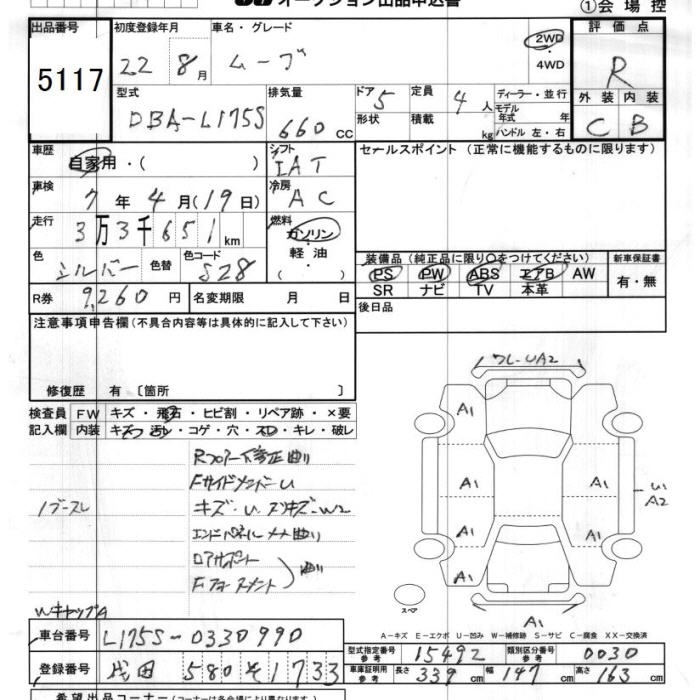 オークション出品申込書 ①会場控
出品番号 初度登録年月 車名・グレード 評価点
5117 22 8月 ムーブ 2WD R
・
4WD
型式 排気量 ドア 定員 ディーラー・並行 外装 内装
DBA-L175S 660cc 5 4人 モデル年式 年 C B
形状 積載 kg ハンドル 左・右
車歴 自家用・( ) シフト IAT セールスポイント (正常に機能するものに限ります)
車検 7年4月(19日) 冷房 AC
走行 3万3千651km 燃料 ガソリン・軽油・( )
色 シルバー 色替 色コード S28
装備品 (純正品に限り○をつけてください) 新車保証書
PS PW ABS エアB AW 有・無
SR ナビ TV 本革
R券 9,260円 名変期限 月 日 後日品
注意事項申告欄(不具合内容等は具体的に記入して下さい)
修復歴 有 〔箇所 〕
検査員 FW キズ・飛石・ヒビ割・リペア跡・×要
記入欄 内装 キズ・汚れ・コゲ・穴・スレ・キレ・破レ
Rフロアー下修正曲り
FサイドメンバーU
キズ・U スリキズ・W2
エンドパネル メナ曲り
ロアサポート
曲り
Wキャップ A
ワレ-UA2
A1
A1 A1
U1
A2
A1 A1
A1
A1
スペア
A-キズ E-エクボ U-凹み W-補修跡 S-サビ C-腐食 XX-交換済
車台番号 L175S-0330990
型式指定番号 参考 15492 類別区分番号 参考 0030
登録番号 成田 580 そ 1733
車庫証明用 参考 長さ 339cm 幅 147cm 高さ 163cm
希望出品コーナー(コーナーは各会場により異なります)